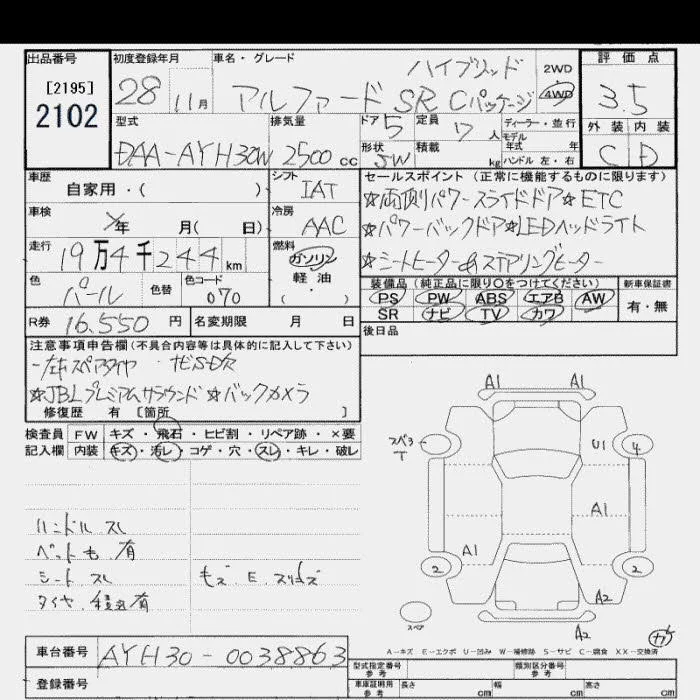 出品番号
[2195]
2102
初度登録年月
28 11月
車名・グレード
ハイブリッド
アルファード SR Cパッケージ
2WD
4WD
評価点
3.5
型式
DAA-AYH30W
排気量
2500 cc
ドア 5
定員 7 人
ディーラー・並行
モデル
年式 年
形状 SW
積載 kg
ハンドル 左・右
外装 内装
C D
車歴
自家用・( )
シフト
IAT
セールスポイント (正常に機能するものに限ります)
☆両側パワースライドドア☆ETC
☆パワーバックドア☆LEDヘッドライト
☆シートヒーター&ステアリングヒーター
車検
年 月( 日)
冷房
AAC
走行
19万4千244km
燃料
ガソリン
軽油
( ・ )
色
パール
色替
色コード
070
装備品 (純正品に限り○をつけてください)
PS PW ABS エアB AW
SR ナビ TV カワ
新車保証書
有・無
R券 16.550 円
名変期限 月 日
後日品
注意事項申告欄(不具合内容等は具体的に記入して下さい)
☆JBLプレミアムサラウンド ☆バックカメラ
修復歴 有 [箇所 ]
検査員 FW キズ・飛石・ヒビ割・リペア跡・×要
記入欄 内装 キズ・汚レ・コゲ・穴・スレ・キレ・破レ
ハンドル スレ
ペットも 有
シート スレ
タイヤ
A1 A1
スペ3
T
U1 4
A1
A1
2 2
A2
スペア
A2
A-キズ E-エクボ U-凹み W-補修跡 S-サビ C-腐食 XX-交換済
車台番号 AYH30-0038863
登録番号
型式指定番号
参考
類別区分番号
参考
車庫証明用
参考
長さ cm 幅 cm 高さ cm